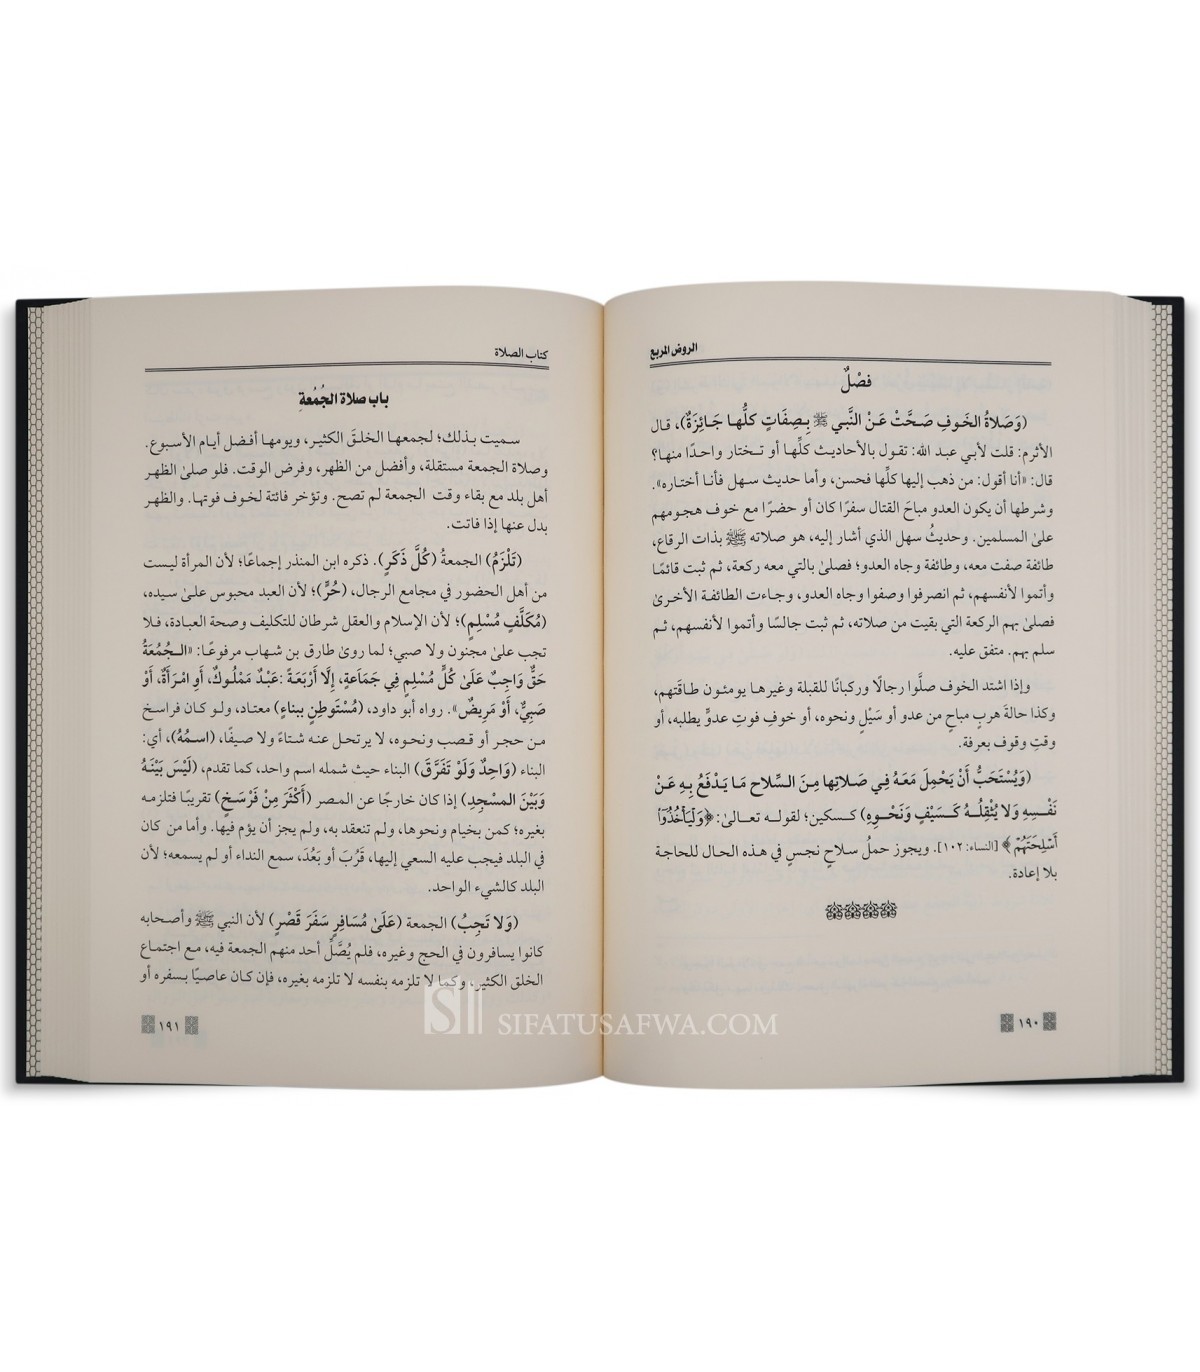 الروض المربع
فصْلٌ
(وَصَلاةُ الخَوفِ صَحَّتْ عَنْ النَّبي ﷺ بِصِفَاتٍ كلُّها جَائِزَةٌ)، قال
الأثرم: قلت لأبي عبد الله: تقول بالأحاديث كلِّها أو تختار واحدًا منها؟
قال: «أنا أقول: من ذهب إليها كلِّها فحسن، وأما حديث سهل فأنا أختاره».
وشرطها أن يكون العدو مباحَ القتال سفرًا كان أو حضرًا مع خوف هجومهم
على المسلمين. وحديثُ سهل الذي أشار إليه، هو صلاته ﷺ بذات الرقاع،
طائفة صفت معه، وطائفة وجاه العدو؛ فصلى بالتي معه ركعة، ثم ثبت قائمًا
وأتموا لأنفسهم، ثم انصرفوا وصفوا وجاه العدو، وجاءت الطائفة الأخرى
فصلى بهم الركعة التي بقيت من صلاته، ثم ثبت جالسًا وأتموا لأنفسهم، ثم
سلم بهم. متفق عليه.
وإذا اشتد الخوف صلَّوا رجالًا وركبانًا للقبلة وغيرها يومئون طاقتهم،
وكذا حالةَ هربٍ مباحٍ من عدو أو سَيْلٍ ونحوه، أو خوفِ فوتِ عدوٍّ يطلبه، أو
وقتِ وقوف بعرفة.
(وَيُسْتَحَبُّ أَنْ يَحْمِلَ مَعَهُ فِي صَلاتِها مِنَ السِّلاح مَا يَدْفَعُ بِهِ عَنْ
نَفْسِهِ وَلا يُثْقِلُهُ كَسَيْفٍ وَنَحْوِهِ) كسكين؛ لقوله تعالى: ﴿وَلْيَأْخُذُوٓاْ
أَسْلِحَتَهُمْ﴾ [النساء: ١٠٢]. ويجوز حملُ سلاحٍ نجسٍ في هذه الحال للحاجة
بلا إعادة.
١٩٠
كتاب الصلاة
باب صلاة الجُمُعةِ
سميت بذلك؛ لجمعها الخلقَ الكثير، ويومها أفضل أيام الأسبوع.
وصلاة الجمعة مستقلة، وأفضل من الظهر، وفرض الوقت. فلو صلى الظهر
أهل بلد مع بقاء وقت الجمعة لم تصح. وتؤخر فائتة لخوف فوتها. والظهر
بدل عنها إذا فاتت.
(تَلْزَمُ) الجمعةُ (كُلَّ ذَكَرٍ). ذكره ابن المنذر إجماعًا؛ لأن المرأة ليست
من أهل الحضور في مجامع الرجال، (حُرٍّ)؛ لأن العبد محبوس على سيده،
(مُكَلَّفٍ مُسْلِمٍ)؛ لأن الإسلام والعقل شرطان للتكليف وصحة العبادة، فلا
تجب على مجنون ولا صبي؛ لما روى طارق بن شهاب مرفوعًا: «الجُمُعَةُ
حَقٌّ وَاجِبٌ عَلَى كُلِّ مُسْلِمٍ فِي جَمَاعَةٍ، إِلَّا أَرْبَعَةً: عَبْدٌ مَمْلُوكٌ، أَوِ امْرَأَةٌ، أَوْ
صَبِيٌّ، أَوْ مَرِيضٌ». رواه أبو داود، (مُسْتَوطِنٍ ببِناءٍ) معتاد، ولو كان فراسخ
من حجر أو قصب ونحوه، لا يرتحل عنه شتاءً ولا صيفًا، (اسمُهُ)، أي:
البناء (وَاحِدٌ وَلَوْ تَفَرَّقَ) البناء حيث شمله اسم واحد، كما تقدم، (لَيْسَ بَيْنَهُ
وَبَيْنَ المسْجِدِ) إذا كان خارجًا عن المصر (أَكْثَرَ مِنْ فَرْسَخٍ) تقريبًا فتلزمه
بغيره؛ كمن بخيام ونحوها، ولم تنعقد به، ولم يجز أن يؤم فيها. وأما من كان
في البلد فيجب عليه السعي إليها، قَرُبَ أو بَعُدَ، سمع النداء أو لم يسمعه؛ لأن
البلد كالشيء الواحد.
(وَلا تَجِبُ) الجمعة (عَلَى مُسَافِرٍ سَفَرَ قَصْرٍ) لأن النبي ﷺ وأصحابه
كانوا يسافرون في الحج وغيره، فلم يُصَلِّ أحد منهم الجمعة فيه، مع اجتماع
الخلق الكثير، وكما لا تلزمه بنفسه لا تلزمه بغيره، فإن كان عاصيًا بسفره أو
١٩١
SIFATUSAFWA.COM